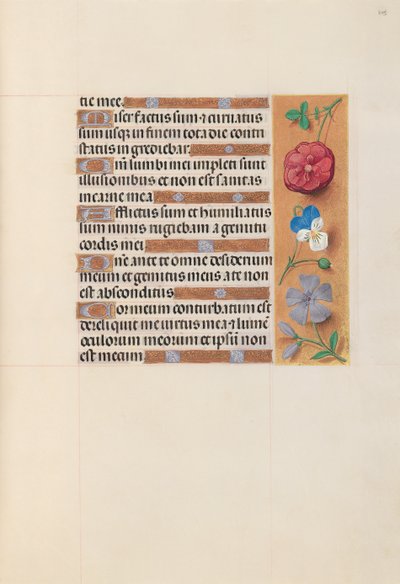 tie mee.
Miser factus sum ⁊ curuatus
sum usq; in finem tota die contri
status in grediebar.
Qm̄ lumbi mei impleti sunt
illusionibus et non est sanitas
in carne mea
Afflictus sum et humiliatus
sum nimis rugiebam a gemitu
cordis mei
Dn̄e ante te omne desiderium
meum et gemitus meus a te non
est absconditus
Cor meum conturbatum est
dereliquit me virtus mea ⁊ lumē
oculorum meorum et ipsū non
est mecum